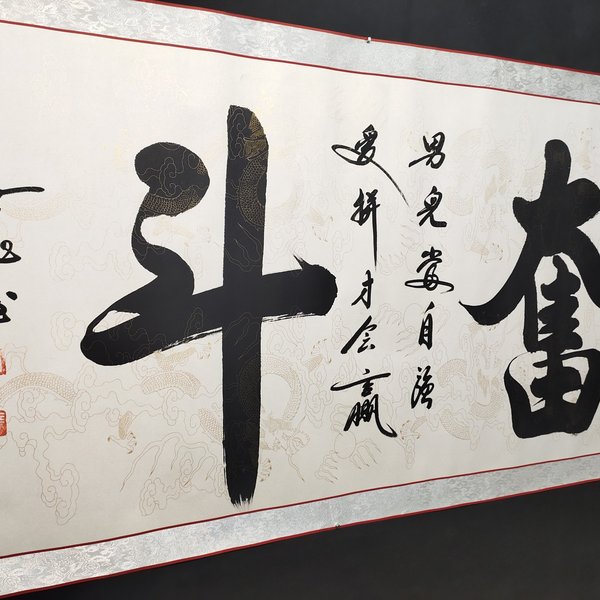 奮
男兒當自強
愛拼才会贏
斗